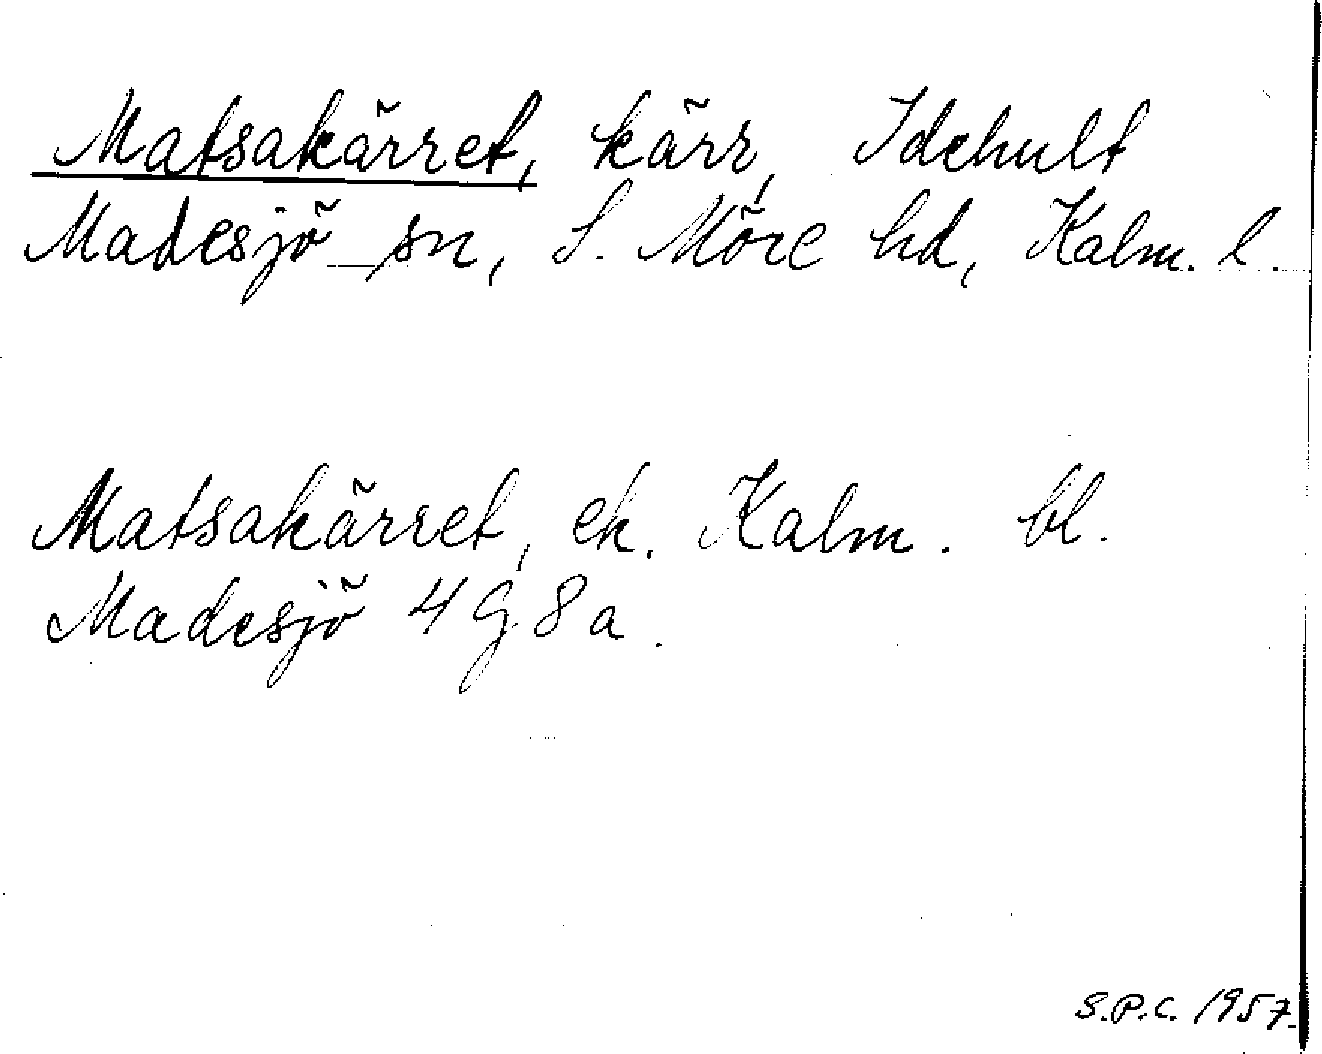 Matsakärret, kärr, Idehult
Madesjö sn, S. Möre hd, Kalm. l.
Matsakärret, ek. Kalm. bl.
Madesjö 4 G 8 a.
S.P.C. 1957.